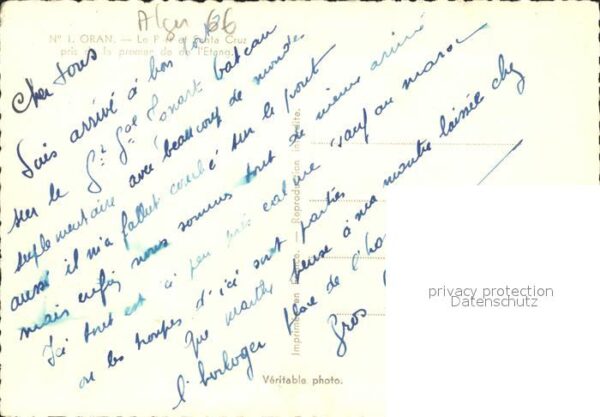 Alger 66
Nº 1. ORAN. — Le Port Santa Cruz
pris de la promenade de l'Etang.
Cher tous
Suis arrivé à bon port
sur le Gal bateau
suplementaire avec beaucoup de monde
aussi il m'a fallut couché sur le pont
mais enfin nous sommes tout de même arrivé
Ici tout est ici peu près calme sauf au maroc
ou les troupes d'ici sont parties
Que marthe pense à ma montre laissée chez
l'horloger place de l'
Gros
Imprimé en France. — Reproduction interdite.
Véritable photo.
privacy protection
Datenschutz